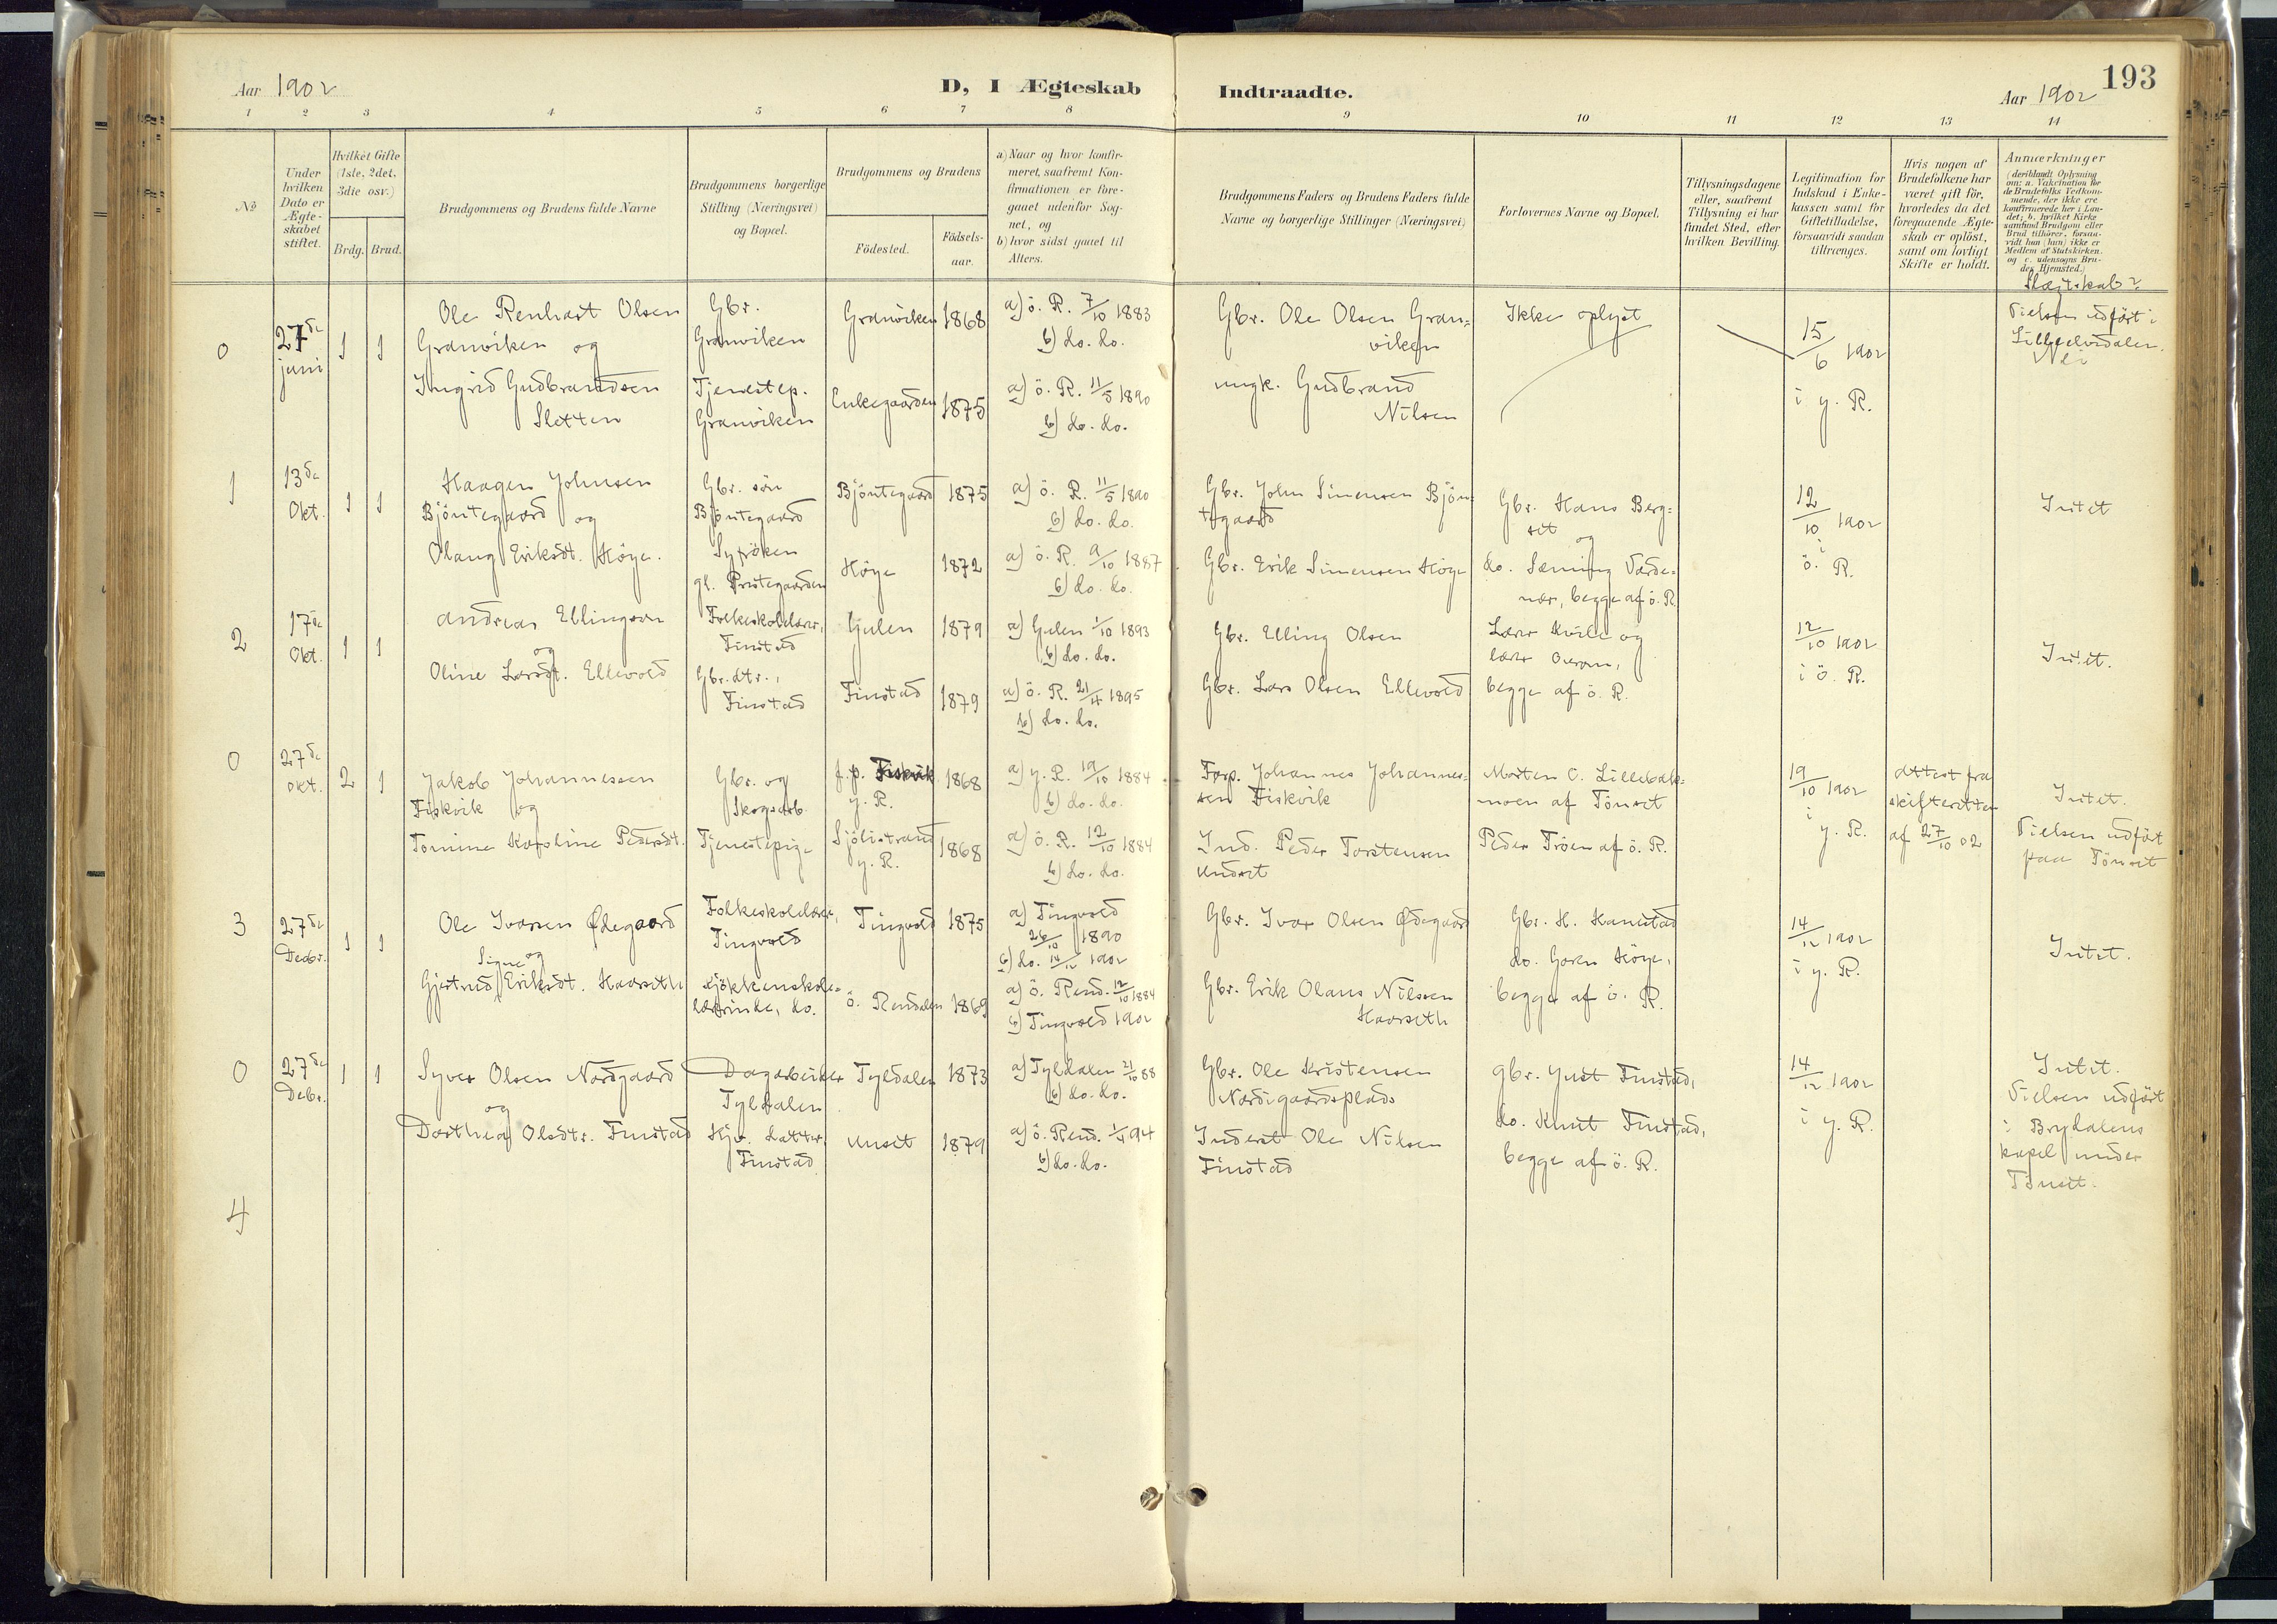 193
Aar 1902
D, I Ægteskab
Indtraadte.
Aar 1902
1 2 3 4 5 6 7 8 9 10 11 12 13 14
No
Under
hvilken
Dato er
Ægte-
skabet
stiftet.
Hvilket Gifte
(1ste, 2det,
3die osv.)
Brdg. Brud.
Brudgommens og Brudens fulde Navne
Brudgommens borgerlige
Stilling (Næringsvei)
og Bopæl.
Brudgommens og Brudens
Födested.
Födsels-
aar.
a) Naar og hvor konfir-
meret, saafremt Kon-
firmationen er fore-
gaaet udenfor Sog-
net, og
b) hvor sidst gaaet til
Alters.
Brudgommens Faders og Brudens Faders fulde
Navne og borgerlige Stillinger (Næringsvei)
Forlovernes Navne og Bopæl.
Tillysningsdagene
eller, saafremt
Tillysning ei har
fundet Sted, efter
hvilken Bevilling.
Legitimation for
Indskud i Enke-
kassen samt for
Giftetilladelse,
forsaavidt saadan
tiltrænges.
Hvis nogen af
Brudefolkene har
været gift för,
hvorledes da det
foregaaende Ægte-
skab er oplöst,
samt om lovligt
Skifte er holdt.
Anmærkninger
(deriblandt Oplysning
om: a. Vakcination for
de Brudefolks Vedkom-
mende, der ikke ere
konfirmerede her i Lan-
det; b. hvilket Kirke
samfund Brudgom eller
Brud tilhörer, forsaa-
vidt han (hun) ikke er
Medlem af Statskirken.
og c. udensogns Bru-
des Hjemsted.)
Slægtskab?
0
27de
juni
1 1
Ole Renhart Olsen
Granviken og
Ingrid Gudbrandsen
Sletten
Gbr.
Granviken
Tjenestep.
Granviken
Granviken 1868
Enkegaarden 1875
a) ö. R. 7/10 1883
b) do. do.
a) ö. R. 11/5 1890
b) do. do.
Gbr. Ole Olsen Gran-
viken
ungk. Gudbrand
Nilsen
Ikke oplyst
15/6 1902
i y. R.
Vielsen udført i
Lilleelvedalen.
Nei
1
13de
Okt.
1 1
Haagen Johnsen
Bjöntegaard og
Olaug Eriksdt. Höye.
Gbr. sön
Bjöntegaard
Syfröken
gl. Prestegaarden
Bjöntegaard 1875
Höye 1872
a) ö. R. 11/5 1890
b) do. do.
a) ö. R. 9/10 1887
b) do. do.
Gbr. John Simensen Bjön-
tegaard
Gbr. Erik Simensen Höye
Gbr. Hans Berg-
set og
do. Sæming Værde-
nær, begge af ö. R.
12/10 1902
i
ö. R.
Intet
2
17de
Okt.
1 1
Andreas Ellingsen
og
Oline Larsdt. Ellevold
Folkeskolelærer,
Finstad
Gbr. dtr.,
Finstad
Gulen 1879
Finstad 1879
a) Gulen 1/10 1893
b) do. do.
a) ö. R. 21/4 1895
b) do. do.
Gbr. Elling Olsen
Gbr. Lars Olsen Ellevold
Lærer Kvile og
lærer
begge af ö. R.
12/10 1902
i ö. R.
Intet.
0
27de
okt.
2 1
Jakob Johannessen
Fiskvik og
Tomine Karoline Pedersdt.
Gbr. og
Skogsarb.
Tjenestepige
f. p. Fiskvik
y. R.
1868
Sjölistrand
y. R.
1868
a) y. R. 19/10 1884
b) do. do.
a) ö. R. 12/10 1884
b) do. do.
Forp. Johannes Johannes-
sen Fiskvik
Ind. Peder Torstensen
Undset
Morten C. Lillebak-
moen af Tönset
Peder Tröen af ö. R.
19/10 1902
i
y. R.
attest fra
skifteretten
af 27/10 02
Intet.
Vielsen udført
paa Tönset
3
27de
Decbr.
1 1
Ole Ivarsen Ødegaard
og
Gjertrud Signe Eriksdt. Haarseth
Folkeskolelærer,
Tingvold
Kjökkenskole-
lærerinde, do.
Tingvold 1875
ö. Rendalen 1869
a) Tingvold
26/10 1890
b) do. 14/12 1902
a) ö. Rend. 12/10 1884
b) Tingvold 1902
Gbr. Ivar Olsen Ødegaard
Gbr. Erik Olaus Nilssen
Haarseth
Gbr. H. Kanestad
do. Goren Höye,
begge af ö. R.
14/12 1902
i y. R.
Intet.
0
27de
Debr.
1 1
Syver Olsen Nordgaard
og
Dorthea Olsdtr. Finstad
Dagarbeider
Tyldalen
Hjv. datter,
Finstad
Tyldalen 1873
Unset 1879
a) Tyldalen 21/10 88
b) do. do.
a) ö. Rend. 1/4 94
b) do. do.
Gbr. Ole Kristensen
Nordigaardsplads
Inderst Ole Nilsen
Finstad
Gbr. Just Finstad,
do. Knut Finstad,
begge af ö. R.
14/12 1902
i y. R.
Intet.
Vielsen udført
i Brydalens
kapel under
Tönset.
4